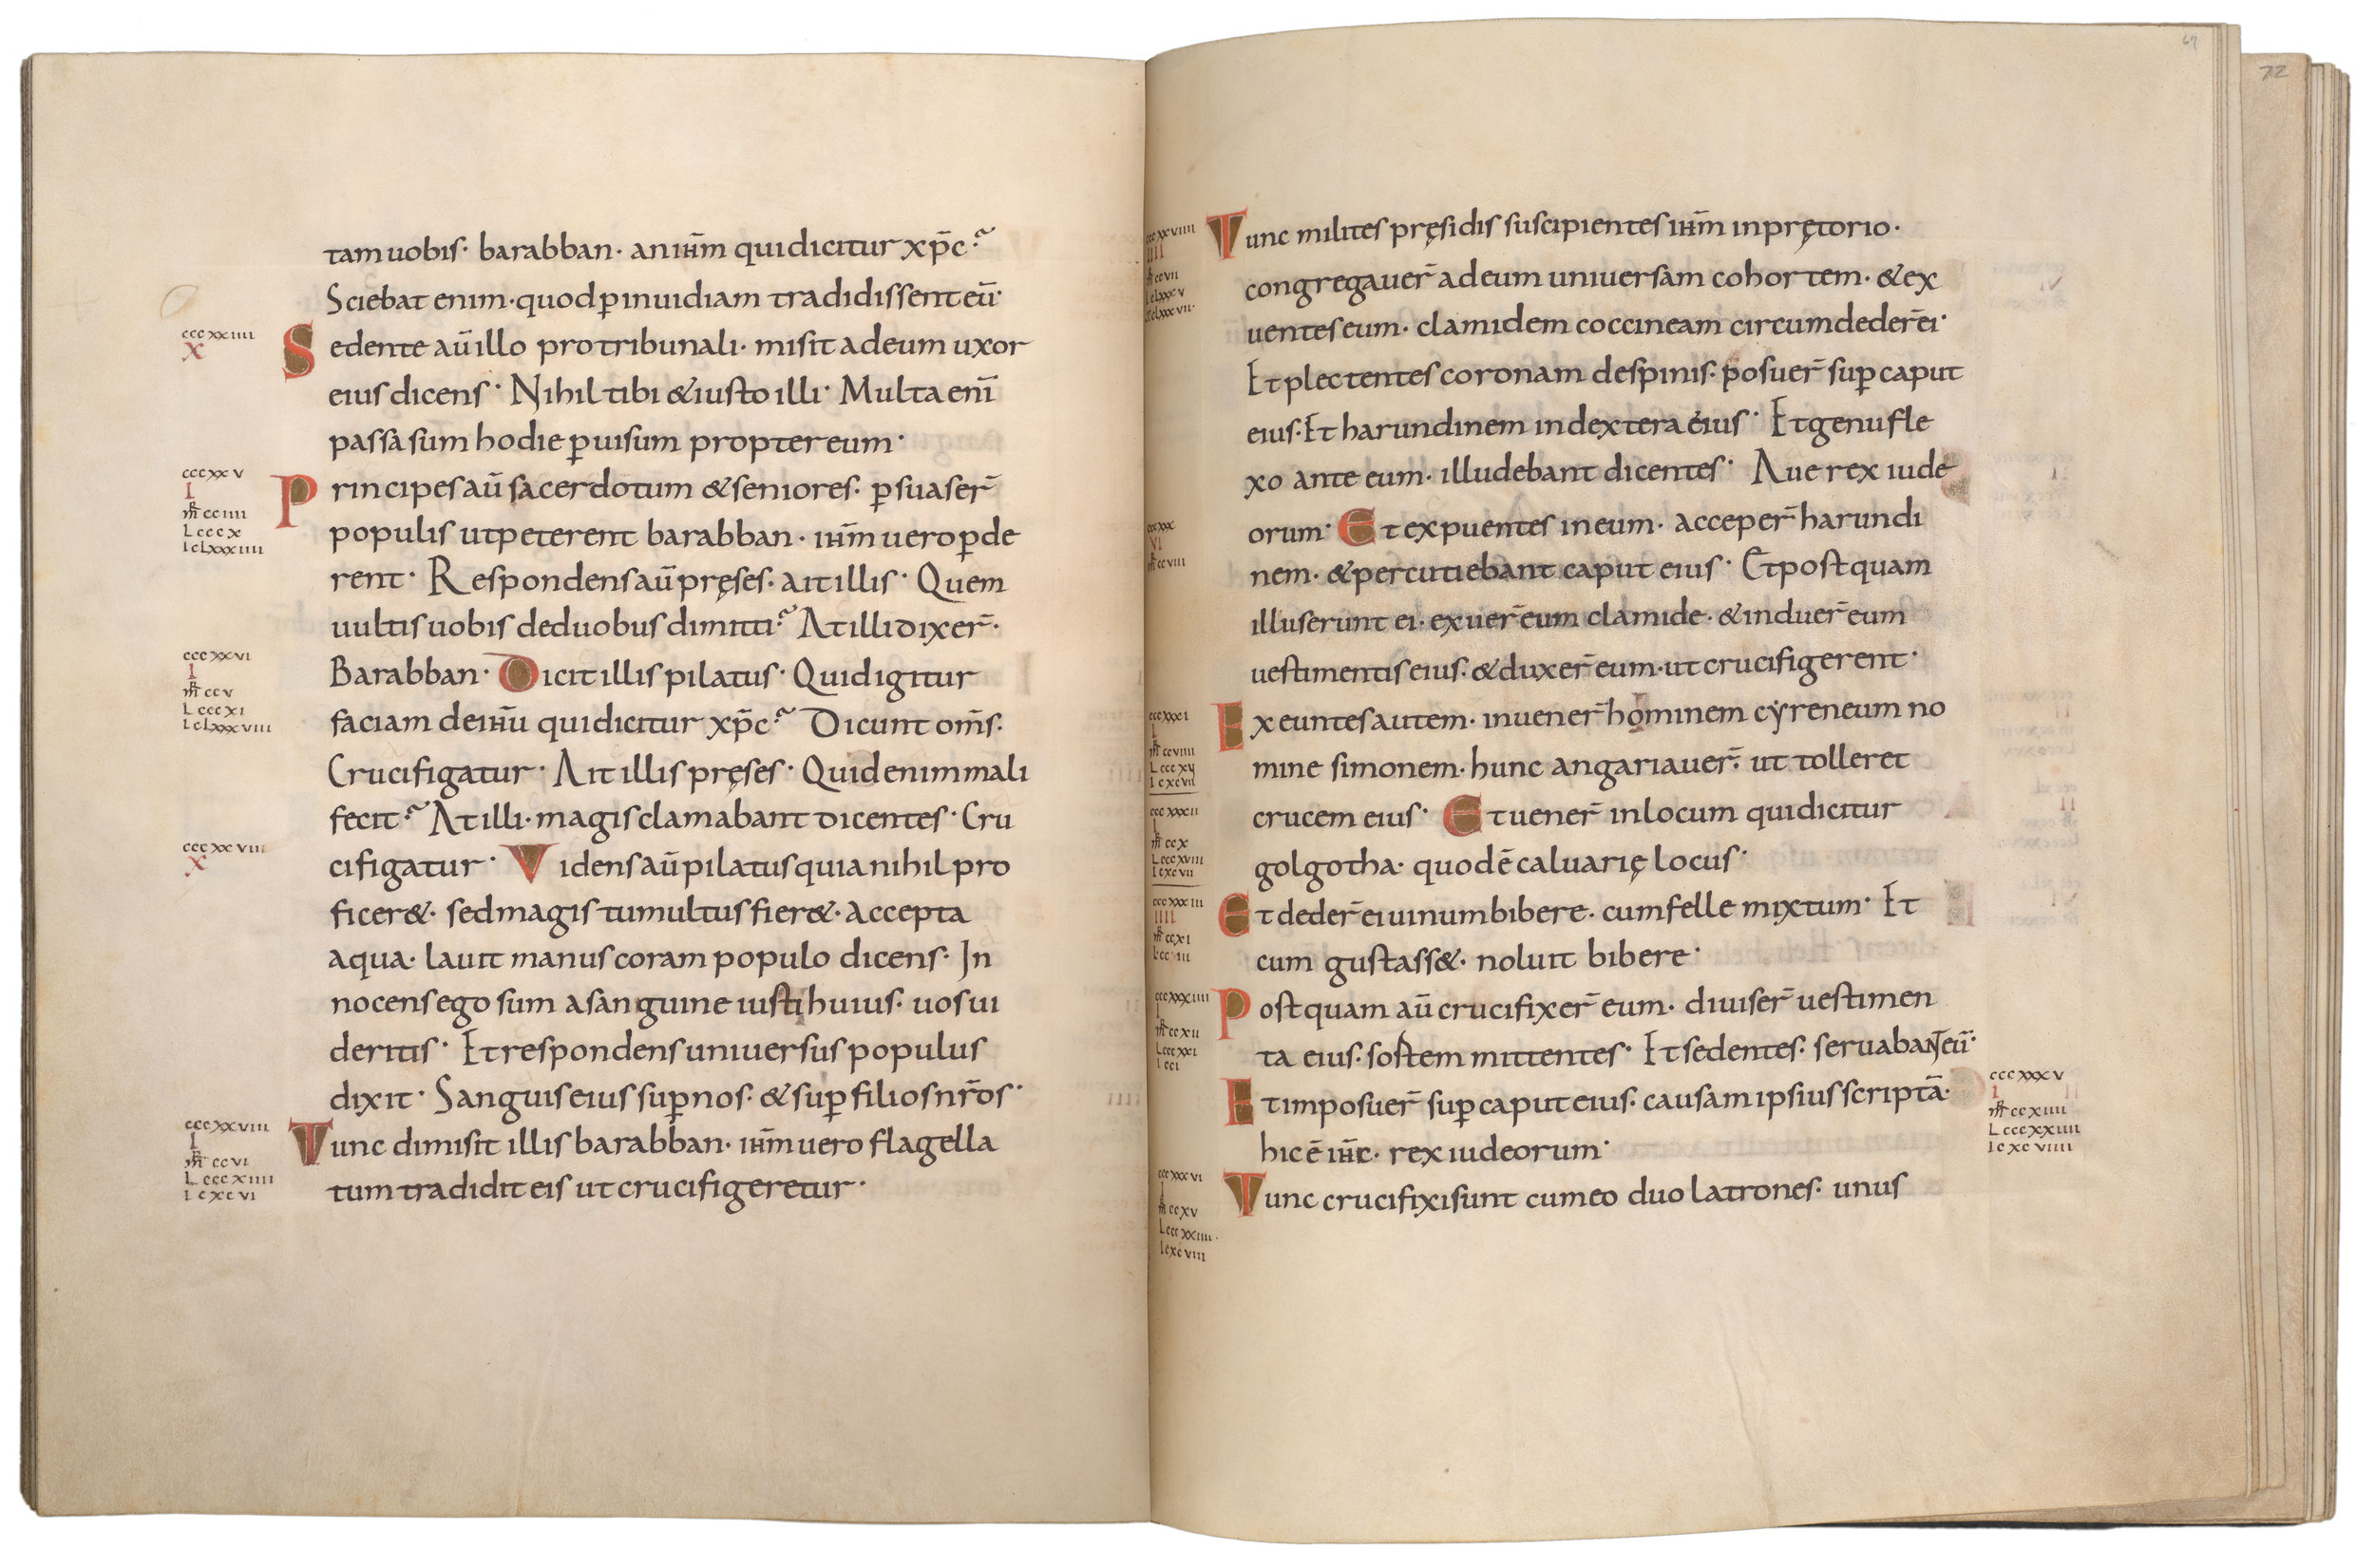 tam uobis· barabban· an ihm̄ qui dicitur xp̄c?
Sciebat enim· quod ꝑ inuidiam tradidissent eū·
cccxxiiii
X
Sedente aū illo pro tribunali· misit ad eum uxor
eius dicens· Nihil tibi & iusto illi· Multa enī
passa sum hodie ꝑ uisum propter eum·
cccxxv
I
m̄r cciiii
L cccx
Io clxxxiiii
Principes aū sacerdotum & seniores· ꝑsuaser̄
populis ut peterent barabban· ihm̄ uero ꝑde
rent· Respondens aū pręses· ait illis· Quem
uultis uobis de duobus dimitti? At illi dixer̄·
cccxxvi
I
m̄r ccv
L cccxi
Io clxxxviii
Barabban· Dicit illis pilatus· Quid igitur
faciam de ihū qui dicitur xp̄c? Dicunt om̄s·
Crucifigatur· Ait illis pręses· Quid enim mali
fecit? At illi· magis clamabant dicentes· Cru
cccxxvii
X
cifigatur· Videns aū pilatus quia nihil pro
ficer&· sed magis tumultus fier&· accepta
aqua· lauit manus coram populo dicens· In
nocens ego sum a sanguine iusti huius· uos ui
deritis· Et respondens uniuersus populus
dixit· Sanguis eius suꝑ nos· & suꝑ filios nr̄os·
cccxxviii
I
m̄r ccvi
L cccxiiii
Io cxcvi
Tunc dimisit illis barabban· ihm̄ uero flagella
tum tradidit eis ut crucifigeretur·
67
72
cccxxviiii
IIII
m̄r ccvii
Tunc milites pręsidis suscipientes ihm̄ in prętorio·
congregauer̄ ad eum uniuersam cohortem· & ex
uentes eum· clamidem coccineam circumdeder̄ ei·
Et plectentes coronam de spinis· posuer̄ suꝑ caput
eius· Et harundinem in dextera eius· Et genu fle
xo ante eum· illudebant dicentes· Aue rex iude
cccxxx
VI
m̄r ccviii
orum· Et expuentes in eum· acceper̄ harundi
nem· & percutiebant caput eius· Et postquam
illuserunt ei· exuer̄ eum clamide· & induer̄ eum
uestimentis eius· & duxer̄ eum· ut crucifigerent·
cccxxxi
I
m̄r ccviiii
L cccxv
Io cxcvii
Exeuntes autem· inuener̄ hominem cyreneum no
mine simonem· hunc angariauer̄· ut tolleret
cccxxxii
I
m̄r ccx
L cccxviii
Io cxcvii
crucem eius· Et uener̄ in locum qui dicitur
golgotha· quod ē caluarię locus·
cccxxxiii
IIII
m̄r ccxi
Io cciii
Et deder̄ ei uinum bibere· cum felle mixtum· Et
cum gustass&· noluit bibere·
cccxxxiiii
I
m̄r ccxii
L cccxxi
Io cci
Postquam aū crucifixer̄ eum· diuiser̄ uestimen
ta eius· sortem mittentes· Et sedentes· seruabant eū·
cccxxxv
I
m̄r ccxiiii
L cccxxiiii
Io cxcviiii
Et imposuer̄ suꝑ caput eius· causam ipsius scriptā·
hic ē ihc̄· rex iudeorum·
cccxxxvi
I
m̄r ccxv
L cccxxiiii·
Io cxcviii
Tunc crucifixi sunt cum eo duo latrones· unus